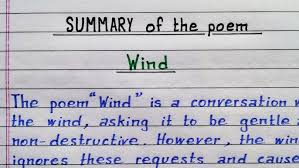 SUMMARY of the poem
Wind
The poem "Wind" is a conversation
the wind, asking it to be gentle
non-destructive. However, the win
ignores these requests and cause